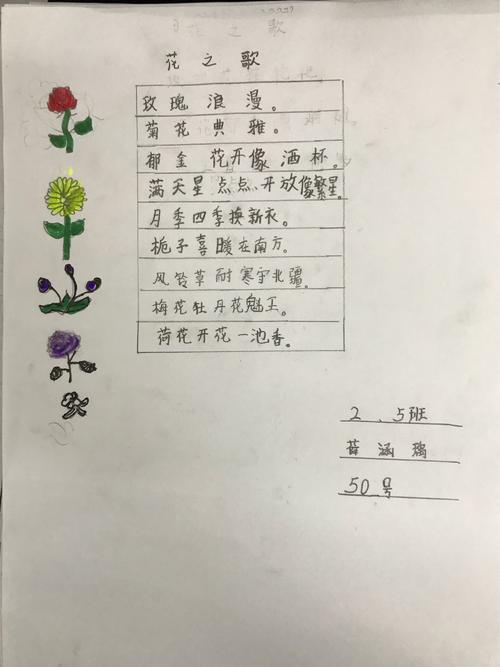 花之歌
玫瑰浪漫。
菊花典雅。
郁金花开像酒杯。
满天星点点开放像繁星。
月季四季换新衣。
栀子喜暖在南方。
风铃草耐寒守北疆。
梅花牡丹花魁王。
荷花开花一池香。
2、5班
涵
50号